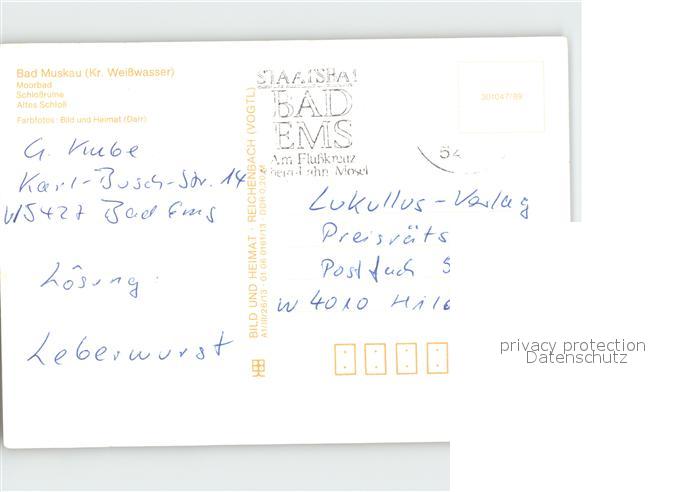 Bad Muskau (Kr. Weißwasser)
Moorbad
Schloßruine
Altes Schloß
Farbfotos: Bild und Heimat (Darr)
G. Kube
Karl-Busch-Str. 14
W5427 Bad Ems
Lösung:
Leberwurst
BILD UND HEIMAT · REICHENBACH (VOGTL)
A1/III/26/13 01 06 0161/13 DDR 0,20 M
STAATSBAD
BAD
EMS
Am Flußkreuz
Rhein-Lahn-Mosel
54
301047/89
Lukullus-Verlag
Preisräts
Postfach
W 4010 Hild
privacy protection
Datenschutz